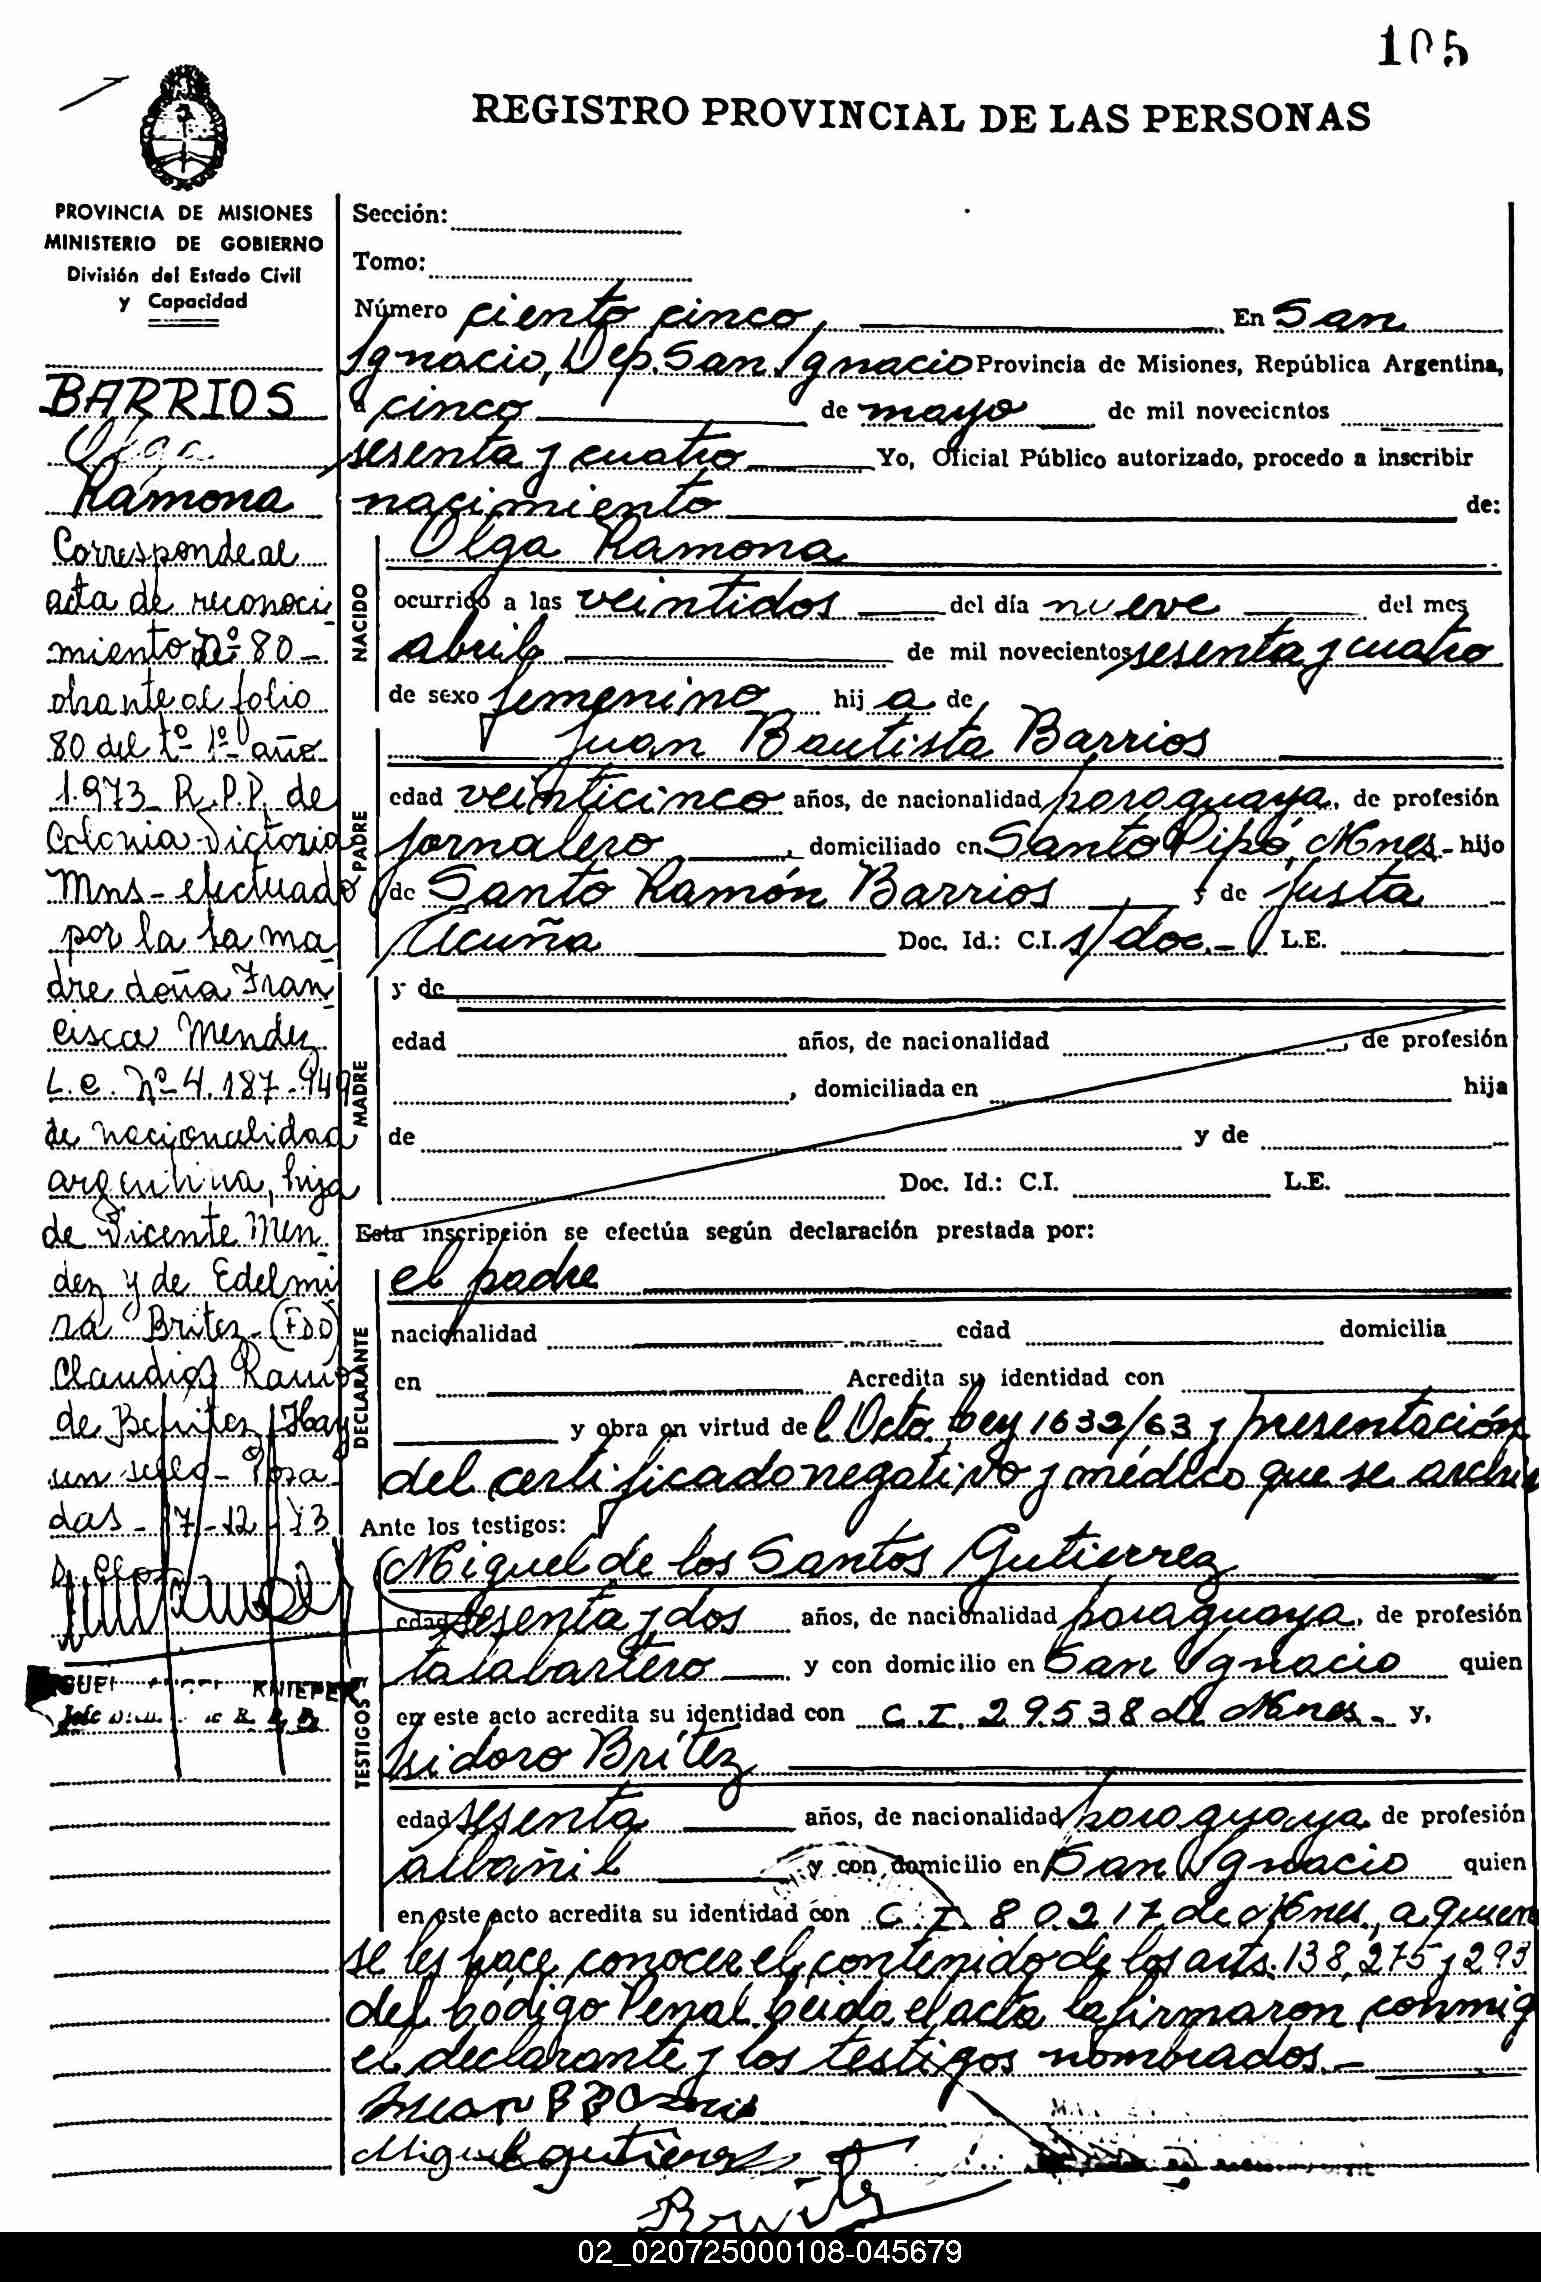 105
REGISTRO PROVINCIAL DE LAS PERSONAS
PROVINCIA DE MISIONES
MINISTERIO DE GOBIERNO
División del Estado Civil
y Capacidad
BARRIOS
Olga
Ramona
Corresponde al
acta de reconoci
miento Nº 80-
obrante al folio
80 del tº 1º año
1.973 R.P.P. de
Colonia Victoria
Mns - efectuado
por la ta ma
dre doña Fran
cisca Mendez
L.e. Nº 4.187.949
de nacionalidad
argentina, hija
de Vicente Men
dez y de Edelmi
ra Britez - (FDO)
Claudios Ramo
de Benitez, Hay
un sello - Posa
das - 17-12-73
Sección:
Tomo:
Número ciento cinco, En San
Ignacio, Dep. San Ignacio Provincia de Misiones, República Argentina,
a cinco de mayo de mil novecientos
sesenta y cuatro Yo, Oficial Público autorizado, procedo a inscribir
nacimiento de:
NACIDO
Olga Ramona
ocurrido a las veintidos del día nueve del mes
abril de mil novecientos sesenta y cuatro
de sexo femenino hij a de
PADRE
Juan Bautista Barrios
edad veinticinco años, de nacionalidad paraguaya, de profesión
jornalero, domiciliado en Santo Pipó, Mnes.- hijo
de Santo Ramón Barrios y de Justa
Acuña Doc. Id.: C.I. s/doc.- L.E.
MADRE
y de
edad años, de nacionalidad , de profesión
, domiciliada en hija
de y de
Doc. Id.: C.I. L.E.
Esta inscripción se efectúa según declaración prestada por:
DECLARANTE
el padre
nacionalidad edad domicilia
en Acredita su identidad con
y obra en virtud de l Dcto. Ley 1632/63 y presentación
del certificado negativo y médico que se archiv
Ante los testigos:
TESTIGOS
Miguel de los Santos Gutierrez
edad sesenta y dos años, de nacionalidad paraguaya, de profesión
talabartero y con domicilio en San Ignacio quien
en este acto acredita su identidad con C.I. 29538 de Mnes.- y,
Isidoro Brítez
edad sesenta años, de nacionalidad paraguaya, de profesión
albañil y con domicilio en San Ignacio quien
en este acto acredita su identidad con C.I. 80.217 de Mnes., a quien
se les hace conocer el contenido de los arts. 138, 275 y 293
del Código Penal. Leida el acta la firmaron conmig
el declarante y los testigos nombrados.-
Miguel gutierrez
02_020725000108-045679